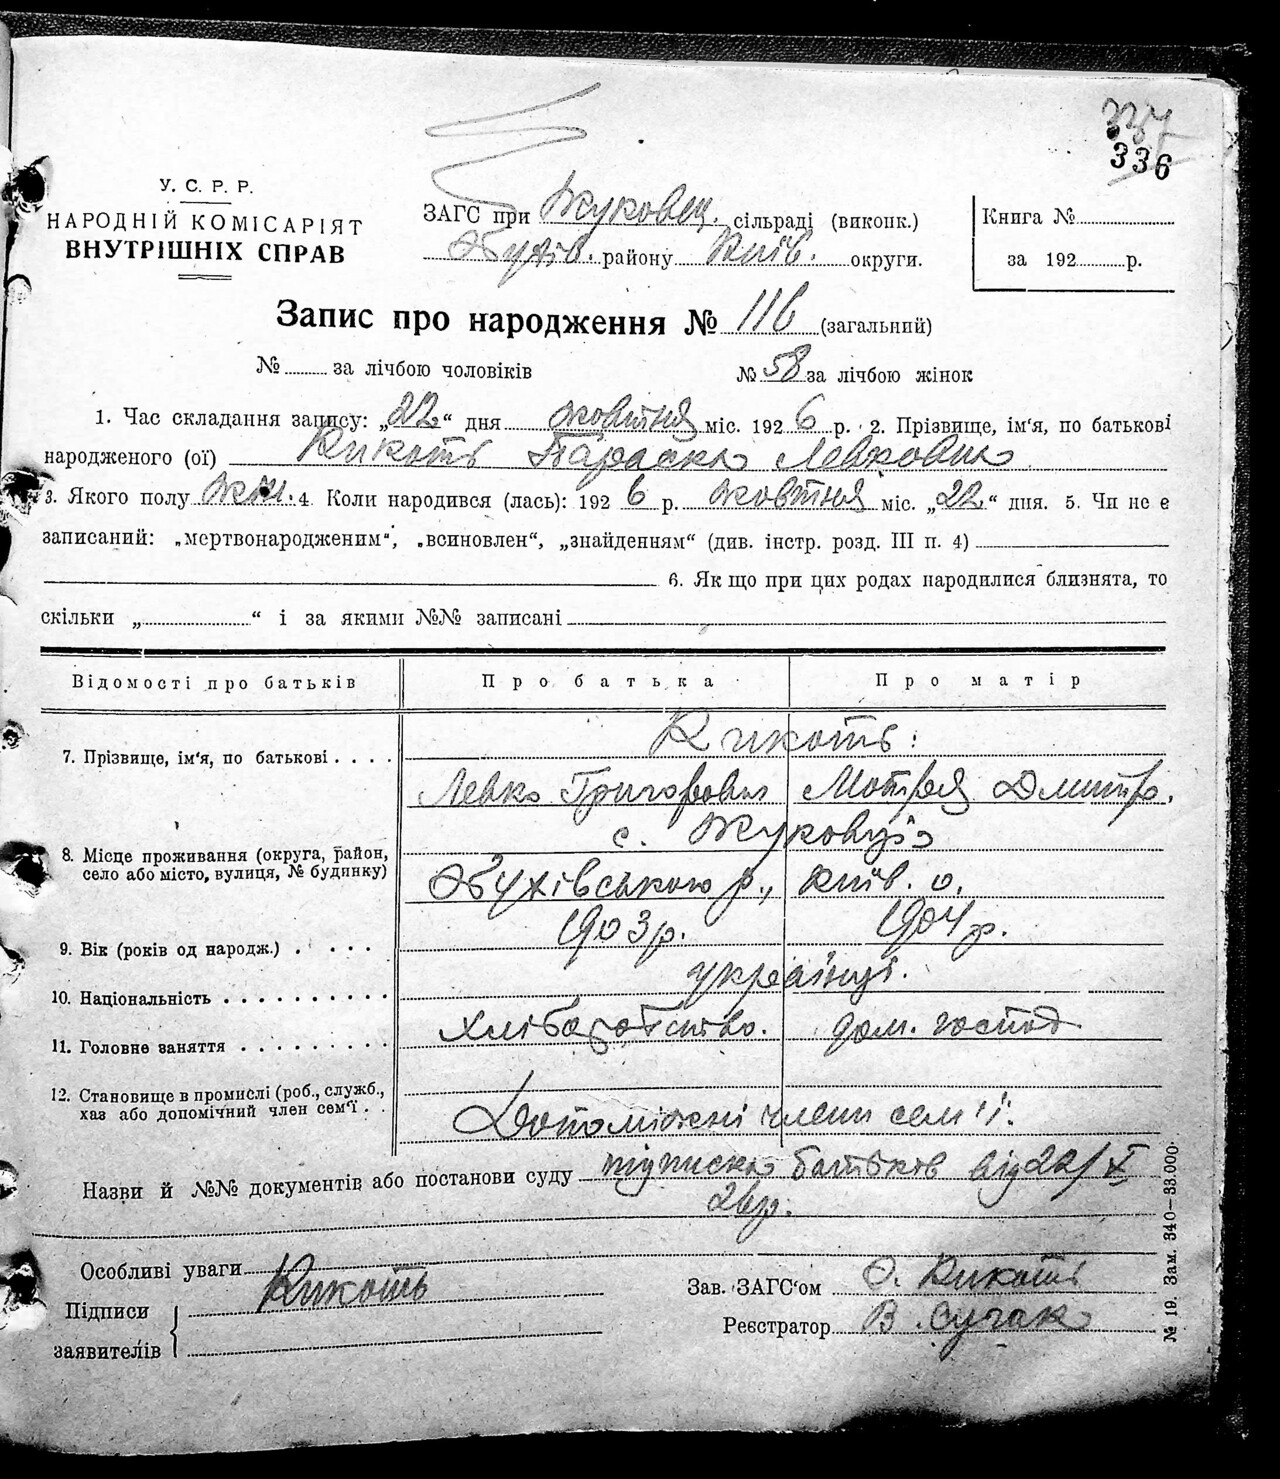 337
336
У. С. Р. Р.
НАРОДНІЙ КОМІСАРІЯТ
ВНУТРІШНІХ СПРАВ
ЗАГС при Жуковец. сільраді (виконк.)
Обухів. району Київ. округи.
Книга №
за 192 р.
Запис про народження № 116 (загальний)
№ за лічбою чоловіків № 58 за лічбою жінок
1. Час складання запису: „22“ дня жовтня міс. 1926 р. 2. Прізвище, ім'я, по батькові
народженого (ої) Кикоть Параска Левковна
3. Якого полу жін. 4. Коли народився (лась): 1926 р. жовтня міс. „22“ дня. 5. Чи не є
записаний: „мертвонародженим“, „всиновлен“, „знайденням“ (див. інстр. розд. III п. 4)
6. Як що при цих родах народилися близнята, то
скільки „ “ і за якими №№ записані
Відомості про батьків Про батька Про матір
Кикоть:
7. Прізвище, ім'я, по батькові . . . .
Левко Григорович Мотря Дмитр.
с. Жуковці
8. Місце проживання (округа, район,
село або місто, вулиця, № будинку)
Обухівського р., Київ. о.
9. Вік (років од народж.) . . . . 1903 р. 1904 р.
10. Національність . . . . . . . . . . українці.
11. Головне заняття . . . . . . . . . Хліборобство. дом. господ.
12. Становище в промислі (роб., служб.,
хаз або допомічний член сем'ї . .
Допоміжні члени сем'ї.
Назви й №№ документів або постанови суду підписка батьків від 22/X
26 р.
Особливі уваги
Підписи Кикоть
заявителів
Зав. ЗАГС'ом Кикоть
Реєстратор В.
№ 19. Зам. 340—33.000.